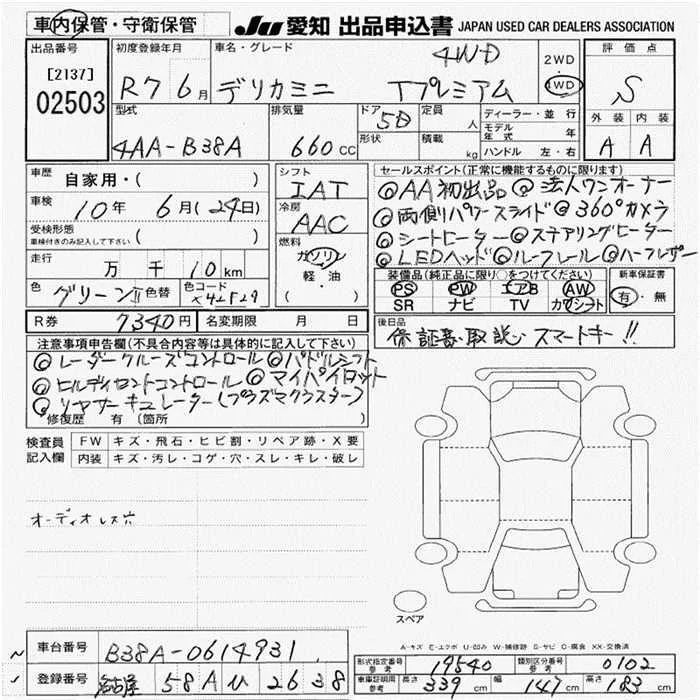 車内保管・守衛保管
JU 愛知 出品申込書 JAPAN USED CAR DEALERS ASSOCIATION
出品番号
[2137]
02503
初度登録年月
R7 6月
車名・グレード
デリカミニ Tプレミアム
4WD
2WD
4WD
評価点
S
外装 内装
A A
型式
4AA-B38A
排気量
660cc
ドア
5D
形状
定員
人
積載
kg
ディーラー・並行
モデル年式 年
ハンドル 左・右
車歴
自家用・( )
車検
10年 6月(24日)
受検形態
車検付きのみ記入して下さい ( )
走行
万 千 10km
色
グリーンⅡ 色替
色コード
X42F29
シフト
IAT
冷房
AAC
燃料
ガソリン
軽・油
( )
セールスポイント(正常に機能するものに限ります)
◎AA初出品 ◎法人ワンオーナー
◎両側パワースライド ◎360°カメラ
◎シートヒーター ◎ステアリングヒーター
◎LEDヘッド ◎ルーフレール ◎ハーフレザー
装備品(純正品に限り○をつけてください)
PS PW エアB AW
SR ナビ TV カワシート
新車保証書
有・無
R券 7340円 名変期限 月 日
後日品
保証書・取説・スマートキー!!
注意事項申告欄(不具合内容等は具体的に記入して下さい)
◎レーダークルーズコントロール ◎パドルシフト
◎ヒルディセントコントロール ◎マイパイロット
◎リヤサーキュレーター(プラズマクラスター)
修復歴 有 (箇所 )
検査員記入欄
FW キズ・飛石・ヒビ割・リペア跡・X要
内装 キズ・汚レ・コゲ・穴・スレ・キレ・破レ
オーディオレス穴
スペア
A-キズ E-エクボ U-凹み W-補修跡 S-サビ C-腐食 XX-交換済
車台番号 B38A-0614931
登録番号 名古屋 58A ひ 2638
形式指定番号 参考 19540
類別区分番号 参考 0102
車庫証明用 参考 長さ 339 cm 幅 147 cm 高さ 183 cm